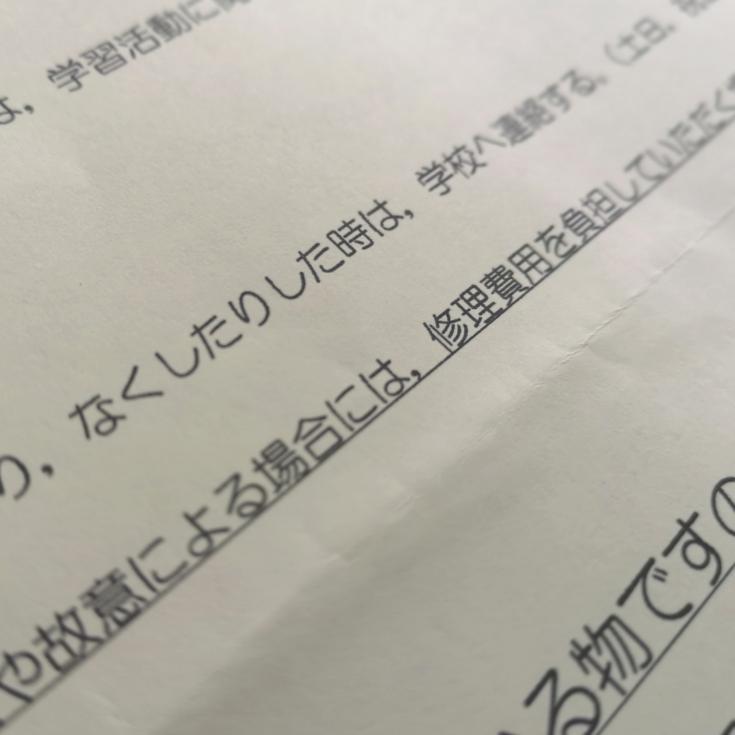 は，学習活動に
り，なくしたりした時は，学校へ連絡する。（土日、
や故意による場合には，修理費用を負担していただく
る物です